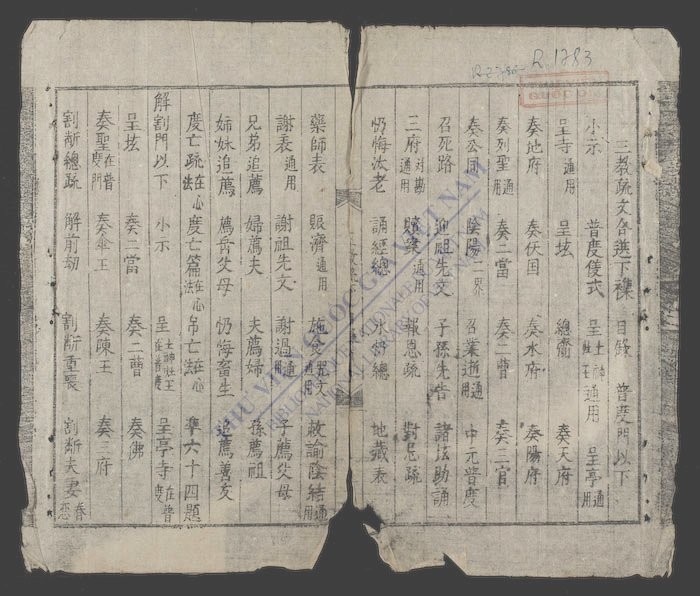 R.1783
三教疏文各選下襍 目錄 普度門以下
小示 普度儀式 呈土神灶王通用 呈亭通用
呈寺通用 呈坛 總齋 奏天府
奏地府 奏仸国 奏水府 奏陽府
奏列聖通用 奏二當 奏二曹 奏三官
奏公同 陰陽二界 召業逝通用 中元普度
召死路 迎祖先文 子孫先告 諸坛助誦
三府对勘通用 通用 報恩疏 對忌疏
忏悔汰老 誦經總 總 地藏表
藥師表 賑濟通用 施食咒文通用 敕諭陰結通用
謝表通用 謝祖先文 謝過通用 子薦父母
兄弟追薦 婦薦夫 夫薦婦 孫薦祖
姊妹追薦 薦岳父母 忏悔畜生 追薦善友
度亡疏在心法 度亡篇在心法 吊亡在心法 準六十四題
解割門以下 小示 呈土神灶王在普度 呈亭寺在普度
呈坛 奏二當 奏二曹 奏佛
奏聖在普度門 奏傘王 奏陳王 奏三府
割斷總疏 解前劫 割斷重喪 割斷夫妻春恋
THU VIEN QUOC GIA VIET NAM
BIBLIOTHEQUE NATIONALE DU VIETNAM
NATIONAL LIBRARY OF VIETNAM